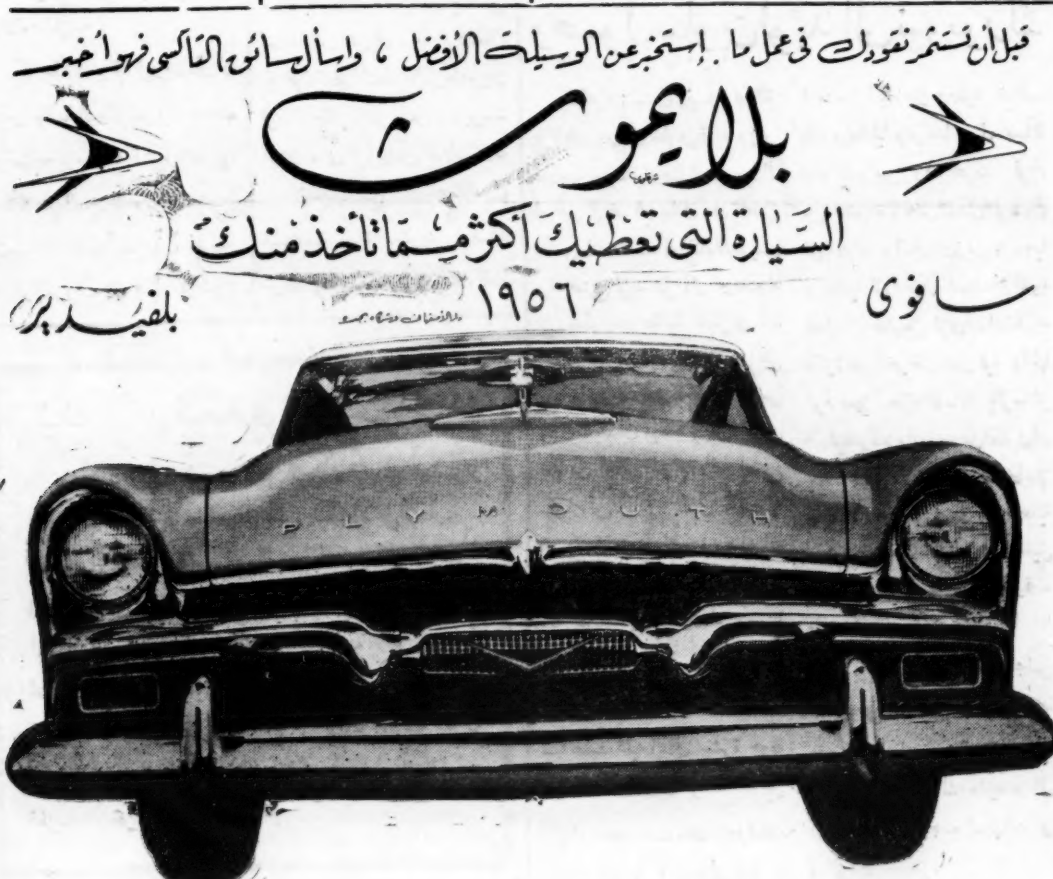 قبل أن تستثمر نقودك فى عمل ما . إستخبر عن الوسيلة الأفضل ، واسأل سائق التاكسى فهو أخبر
بلايموث
السيارة التى تعطيك أكثر مما تأخذ منك
سافوى ١٩٥٦ بلفيدير
PLYMOUTH